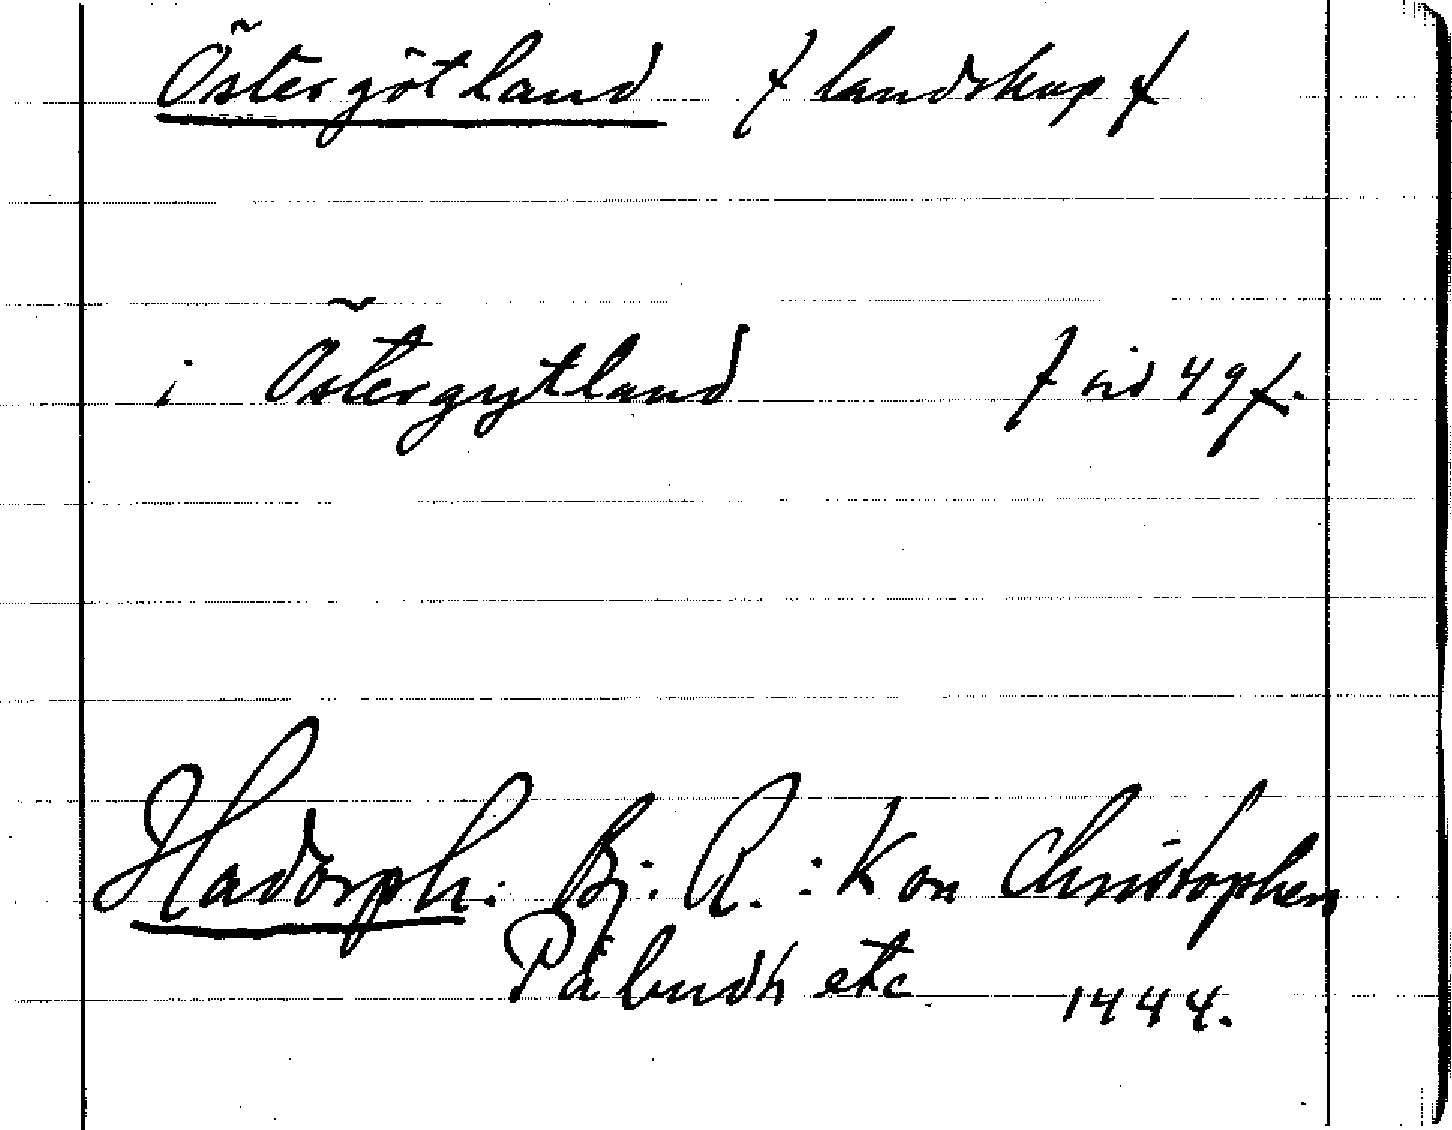 Östergötland / landskap /
i Östergytland / sid 49 /.
Hadorph: Bj. R. : Kon Christophers
Påbudh etc 1444.